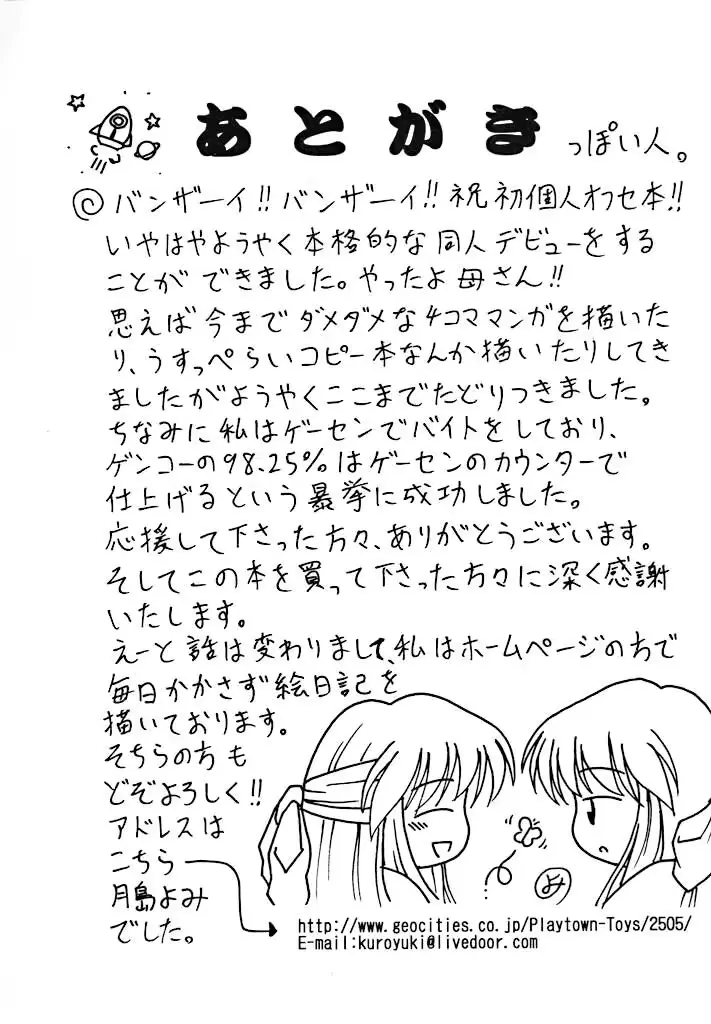 あとがき っぽい人。
◎バンザーイ!! バンザーイ!! 祝 初個人オフセ本!!
いやはやようやく本格的な同人デビューをする
ことができました。やったよ母さん!!
思えば今までダメダメな4コママンガを描いた
り、うすっぺらいコピー本なんか描いたりしてき
ましたがようやくここまでたどりつきました。
ちなみに私はゲーセンでバイトをしており、
ゲンコーの98.25%はゲーセンのカウンターで
仕上げるという暴挙に成功しました。
応援して下さった方々、ありがとうございます。
そしてこの本を買って下さった方々に深く感謝
いたします。
えーと話は変わりまして、私はホームページの方で
毎日かかさず絵日記を
描いております。
そちらの方も
どぞよろしく!!
アドレスは
こちら
月島よみ
でした。
よみ
http://www.geocities.co.jp/Playtown-Toys/2505/
E-mail:kuroyuki@livedoor.com